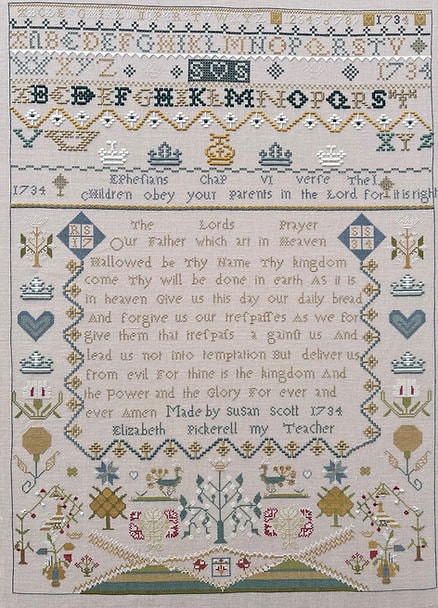 1734
A B C D E F G H I K L M N O P Q R S T V
W X Y Z S S 1734
A B C D E F G H I K L M N O P Q R S T
V X Y Z
Ephesians Chap VI verse The I
1734 Children obey your parents in the Lord for it is right
RS 17 The Lords Prayer SS 34
Our Father which art in Heaven
Hallowed be Thy Name Thy kingdom
come Thy will be done in earth AS it is
in heaven Give us this day our daily bread
And forgive us our trefpaffes As we for
give them that trefpafs a gainft us And
lead us not into temptation But deliver us
from evil For thine is the kingdom And
the Power and the Glory For ever and
ever Amen Made by Susan Scott 1734
Elizabeth Pickerell my Teacher